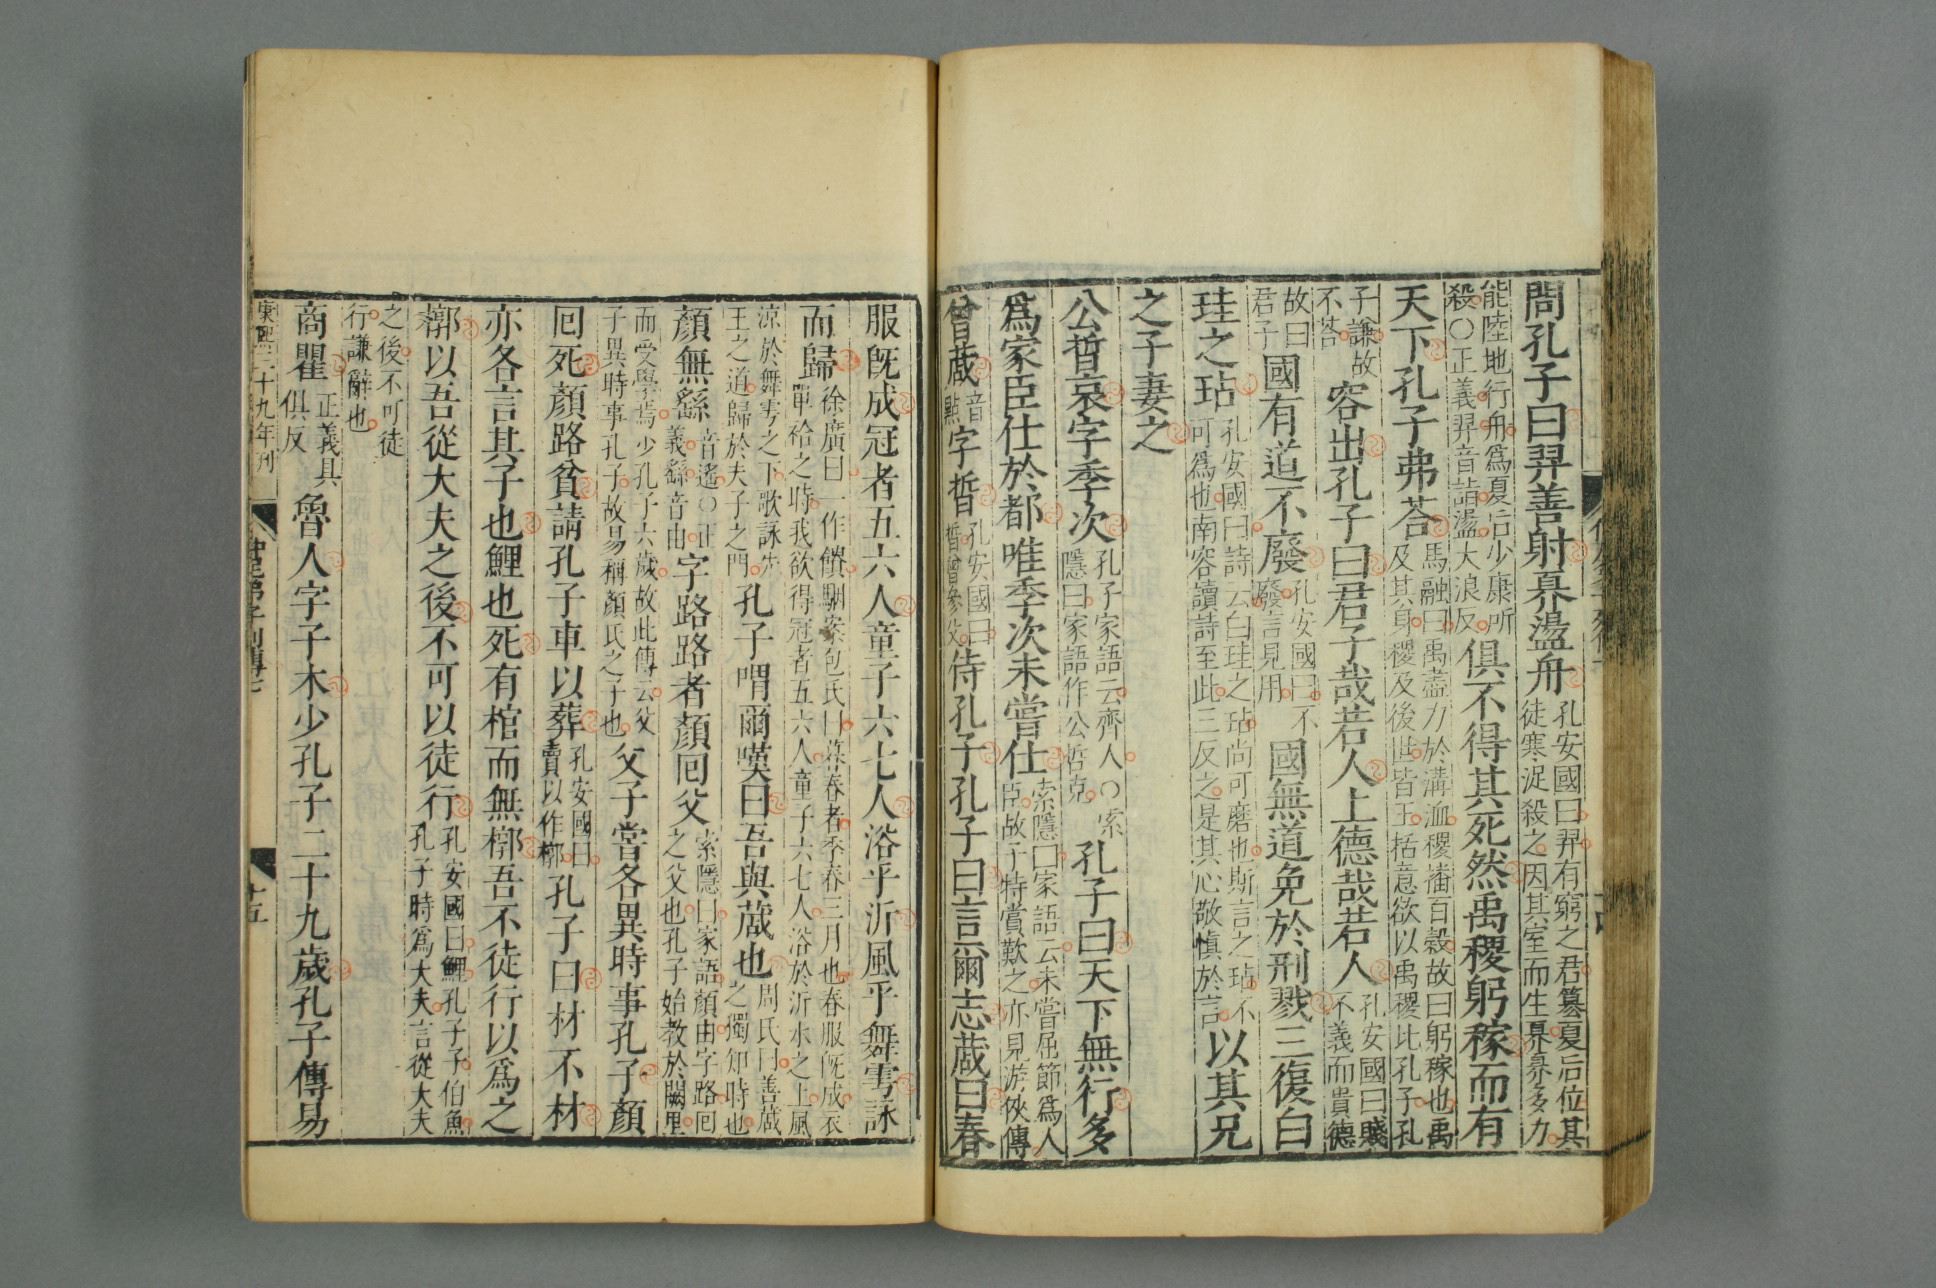 問孔子曰羿善射奡盪舟孔安國曰羿有窮之君簒夏后位其徒寒浞殺之因其室而生奡奡多力
能陸地行舟爲夏后少康所殺○正義羿音詣盪大浪反俱不得其死然禹稷躬稼而有
天下孔子弗荅馬融曰禹盡力於溝洫稷播百穀故曰躬稼也禹及其身稷及後世皆王括意欲以禹稷比孔子孔
子謙故不荅容出孔子曰君子哉若人上德哉若人孔安國曰賤不義而貴德
故曰君子國有道不廢孔安國曰不廢言見用國無道免於刑戮三復白
珪之玷孔安國曰詩云白珪之玷尚可磨也斯言之玷不可爲也南容讀詩至此三反之是其心敬愼於言以其兄
之子妻之
公晳哀字季次孔子家語云齊人○索隱曰家語作公晳克孔子曰天下無行多
爲家臣仕於都唯季次未嘗仕索隱曰家語云未嘗屈節爲人臣故子特賞歎之亦見游俠傳
曾蒧音點字晳孔安國曰晳曾參父侍孔子孔子曰言爾志蒧曰春
服旣成冠者五六人童子六七人浴乎沂風乎舞雩詠
而歸徐廣曰一作饋駰案包氏曰莫春者季春三月也春服旣成衣單袷之時我欲得冠者五六人童子六七人浴於沂水之上風
涼於舞雩之下歌詠先王之道歸於夫子之門孔子喟爾嘆曰吾與蒧也周氏曰善蒧之獨知時也
顏無繇音遙○正義繇音由字路路者顏回父索隱曰家語顏由字路回之父也孔子始教於闕里
而受學焉少孔子六歲故此傳云父子異時事孔子故易稱顏氏之子也父子嘗各異時事孔子顏
回死顏路貧請孔子車以葬孔安國曰賣以作槨孔子曰材不材
亦各言其子也鯉也死有棺而無槨吾不徒行以爲之
槨以吾從大夫之後不可以徒行孔安國曰鯉孔子子伯魚孔子時爲大夫言從大夫
之後不可徒行謙辭也
商瞿正義具俱反魯人字子木少孔子二十九歲孔子傳易
康熙三十九年刊
十五